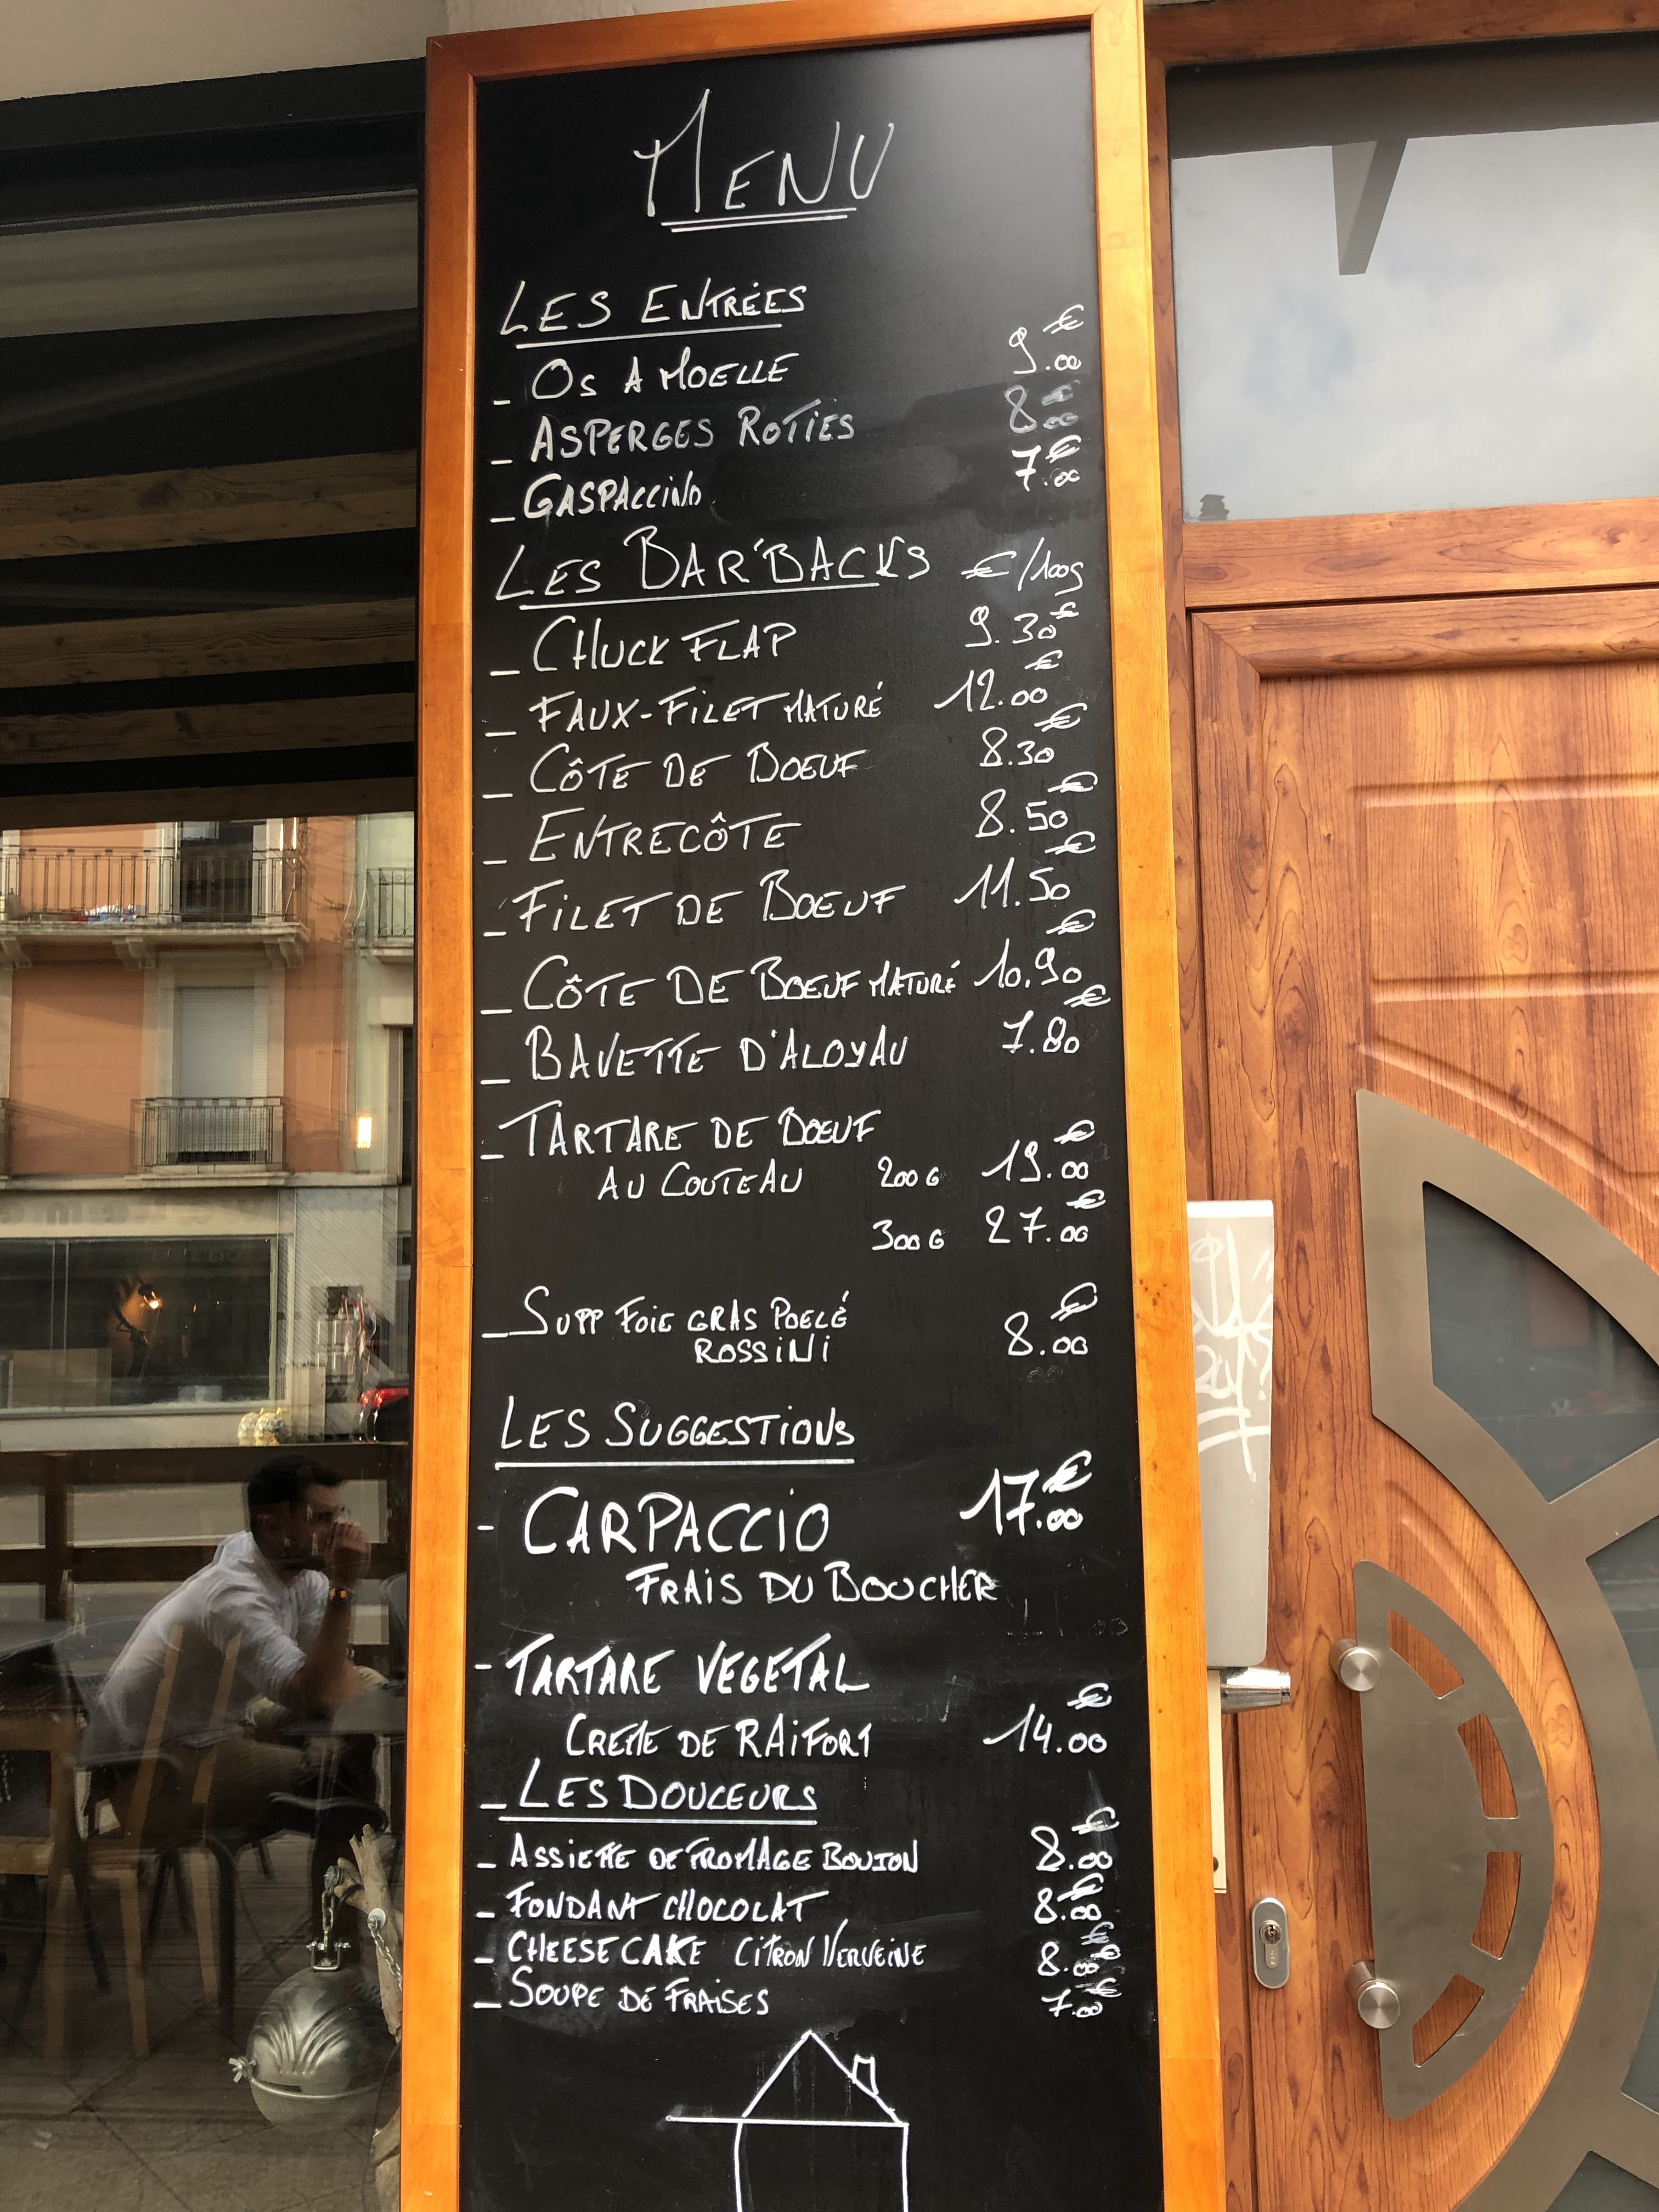 MENU
LES ENTRÉES
_ OS A MOELLE 9.00€
_ ASPERGES ROTIES 8.00€
_ GASPACCINO 7.00€
LES BAR'BACKS €/100g
_ CHUCK FLAP 9.30€
_ FAUX-FILET MATURÉ 12.00€
_ CÔTE DE BOEUF 8.30€
_ ENTRECÔTE 8.50€
_ FILET DE BOEUF 11.50€
_ CÔTE DE BOEUF MATURÉ 10.90€
_ BAVETTE D'ALOYAU 7.80€
_ TARTARE DE BOEUF
AU COUTEAU 200G 19.00€
300G 27.00€
_ SUPP FOIE GRAS POELÉ
ROSSINI 8.00€
LES SUGGESTIONS
- CARPACCIO 17.00€
FRAIS DU BOUCHER
- TARTARE VEGETAL
CREME DE RAIFORT 14.00€
_ LES DOUCEURS
_ ASSIETTE DE FROMAGE BOUJON 8.00€
_ FONDANT CHOCOLAT 8.00€
_ CHEESE CAKE CITRON VERVEINE 8.00€
_ SOUPE DE FRAISES 7.00€